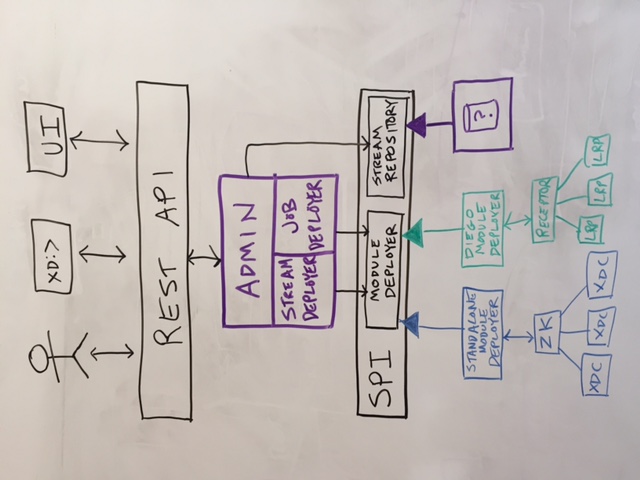 XD:>
UI
REST API
ADMIN
STREAM
DEPLOYER
JOB
DEPLOYER
SPI
MODULE
DEPLOYER
STREAM
REPOSITORY
STANDALONE
MODULE
DEPLOYER
DIEGO
MODULE
DEPLOYER
?
ZK
RECEPTOR
XDC
XDC
XDC
LRP
LRP
LRP